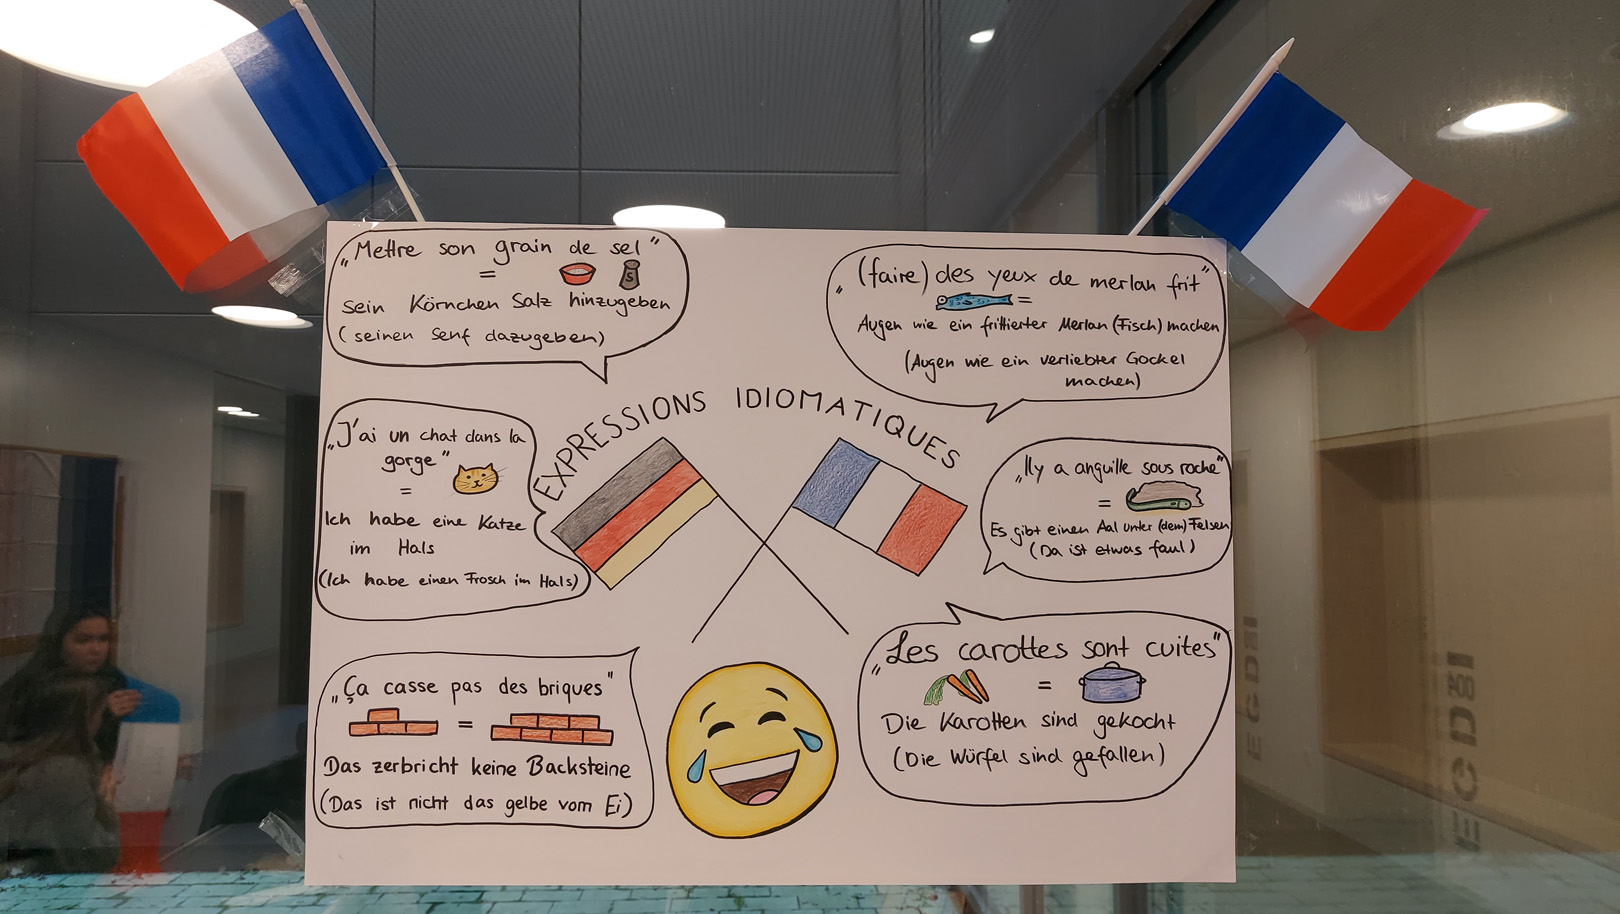 „Mettre son grain de sel"
=
S
sein Körnchen Salz hinzugeben
(seinen Senf dazugeben)
„(faire) des yeux de merlan frit"
=
Augen wie ein frittierter Merlan (Fisch) machen
(Augen wie ein verliebter Gockel
machen)
EXPRESSIONS IDIOMATIQUES
„J'ai un chat dans la
gorge"
=
Ich habe eine Katze
im Hals
(Ich habe einen Frosch im Hals)
„Il y a anguille sous roche"
=
Es gibt einen Aal unter (dem) Felsen
(Da ist etwas faul)
„Ça casse pas des briques"
=
Das zerbricht keine Backsteine
(Das ist nicht das gelbe vom Ei)
„Les carottes sont cuites"
=
Die Karotten sind gekocht
(Die Würfel sind gefallen)